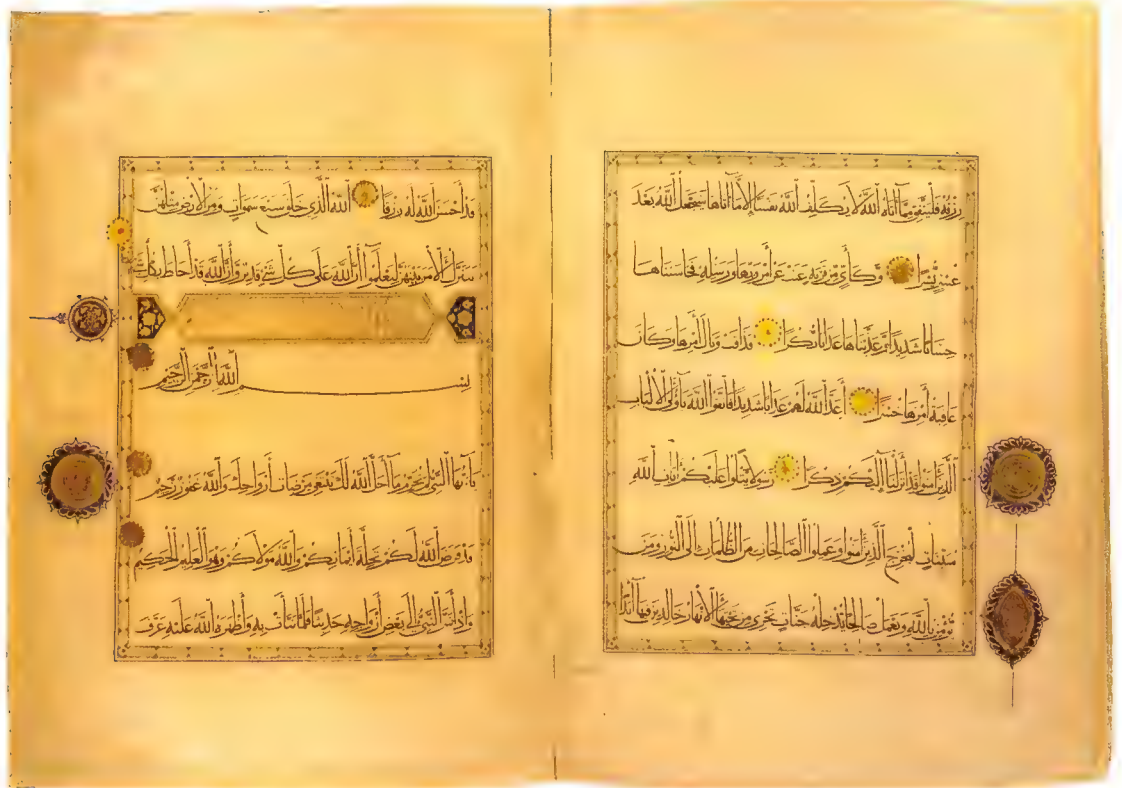 رِزْقُهُ فَلْيُنْفِقْ مِمَّا آتَاهُ اللَّهُ لَا يُكَلِّفُ اللَّهُ نَفْسًا إِلَّا مَا آتَاهَا سَيَجْعَلُ اللَّهُ بَعْدَ
عُسْرٍ يُسْرًا وَكَأَيِّنْ مِنْ قَرْيَةٍ عَتَتْ عَنْ أَمْرِ رَبِّهَا وَرُسُلِهِ فَحَاسَبْنَاهَا
حِسَابًا شَدِيدًا وَعَذَّبْنَاهَا عَذَابًا نُكْرًا فَذَاقَتْ وَبَالَ أَمْرِهَا وَكَانَ
عَاقِبَةُ أَمْرِهَا خُسْرًا أَعَدَّ اللَّهُ لَهُمْ عَذَابًا شَدِيدًا فَاتَّقُوا اللَّهَ يَا أُولِي الْأَلْبَابِ
الَّذِينَ آمَنُوا قَدْ أَنْزَلَ اللَّهُ إِلَيْكُمْ ذِكْرًا رَسُولًا يَتْلُوا عَلَيْكُمْ آيَاتِ اللَّهِ
مُبَيِّنَاتٍ لِيُخْرِجَ الَّذِينَ آمَنُوا وَعَمِلُوا الصَّالِحَاتِ مِنَ الظُّلُمَاتِ إِلَى النُّورِ وَمَنْ
يُؤْمِنْ بِاللَّهِ وَيَعْمَلْ صَالِحًا يُدْخِلْهُ جَنَّاتٍ تَجْرِي مِنْ تَحْتِهَا الْأَنْهَارُ خَالِدِينَ فِيهَا أَبَدًا
قَدْ أَحْسَنَ اللَّهُ لَهُ رِزْقًا اللَّهُ الَّذِي خَلَقَ سَبْعَ سَمَوَاتٍ وَمِنَ الْأَرْضِ مِثْلَهُنَّ
يَتَنَزَّلُ الْأَمْرُ بَيْنَهُنَّ لِتَعْلَمُوا أَنَّ اللَّهَ عَلَى كُلِّ شَيْءٍ قَدِيرٌ وَأَنَّ اللَّهَ قَدْ أَحَاطَ بِكُلِّ
بِسْمِ اللَّهِ الرَّحْمَنِ الرَّحِيمِ
يَا أَيُّهَا النَّبِيُّ لِمَ تُحَرِّمُ مَا أَحَلَّ اللَّهُ لَكَ تَبْتَغِي مَرْضَاتَ أَزْوَاجِكَ وَاللَّهُ غَفُورٌ رَحِيمٌ
قَدْ فَرَضَ اللَّهُ لَكُمْ تَحِلَّةَ أَيْمَانِكُمْ وَاللَّهُ مَوْلَاكُمْ وَهُوَ الْعَلِيمُ الْحَكِيمُ
وَإِذْ أَسَرَّ النَّبِيُّ إِلَى بَعْضِ أَزْوَاجِهِ حَدِيثًا فَلَمَّا نَبَّأَتْ بِهِ وَأَظْهَرَهُ اللَّهُ عَلَيْهِ عَرَّفَ